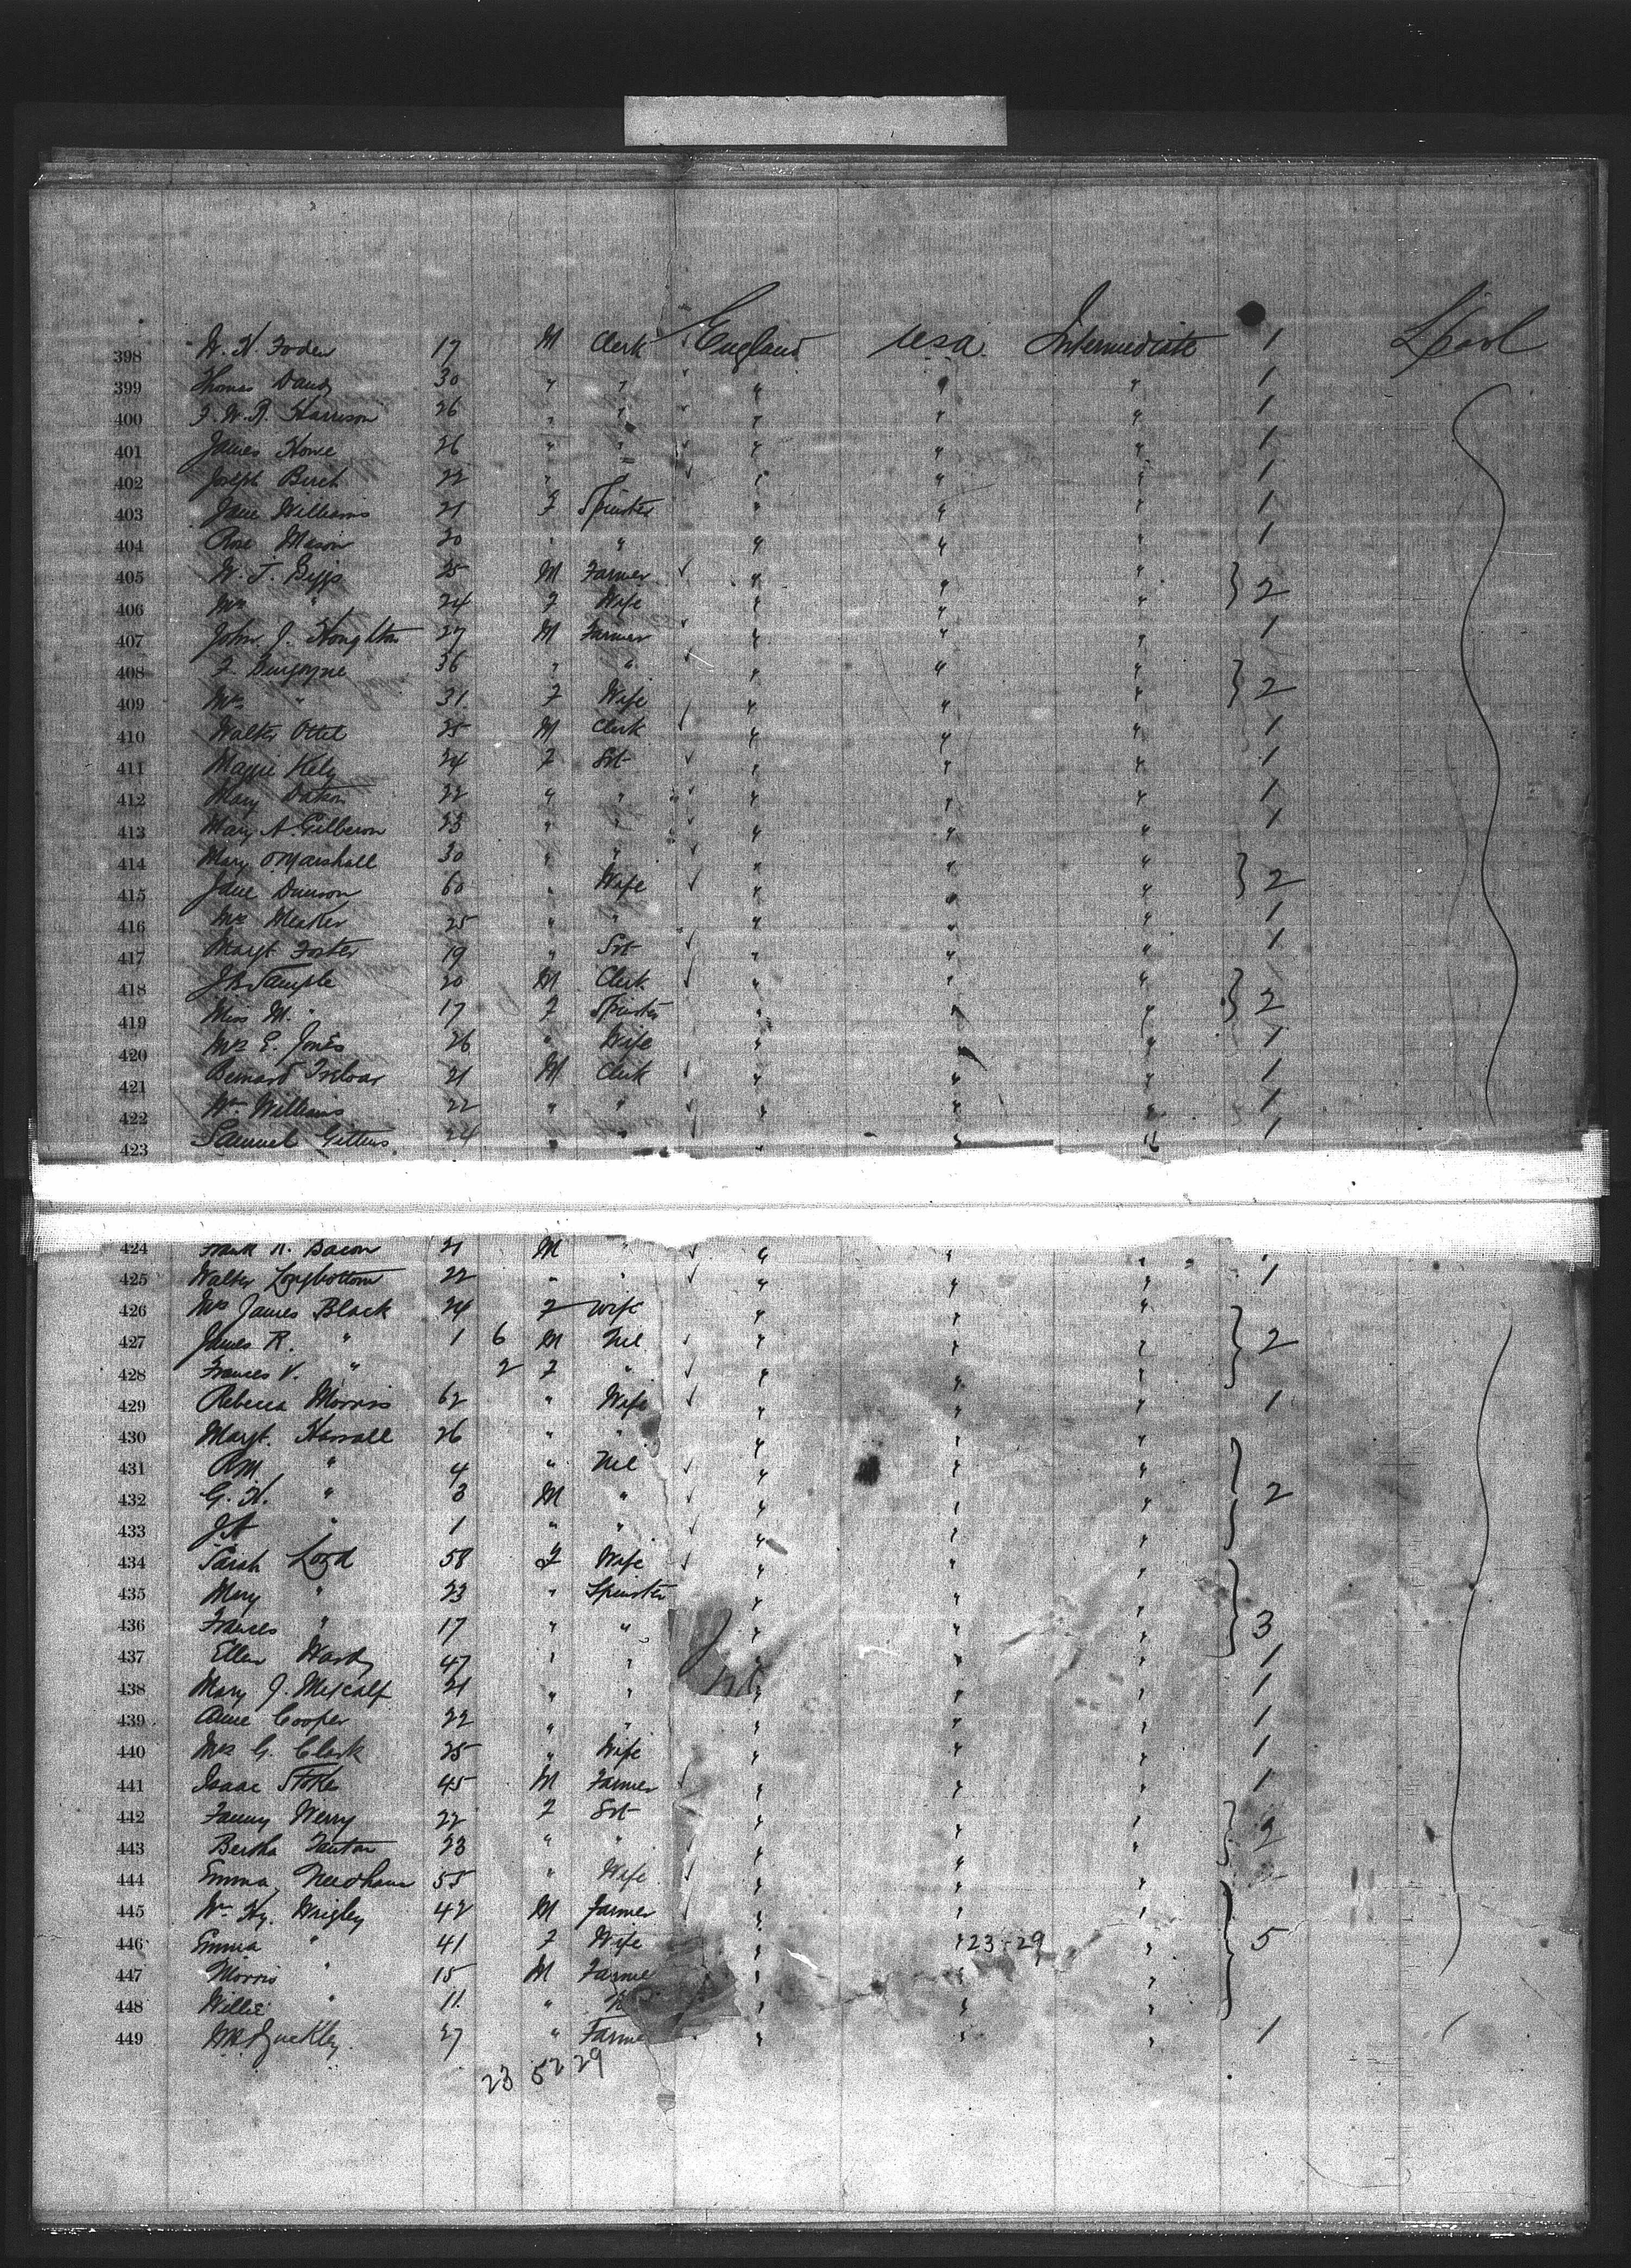 398 W. H. Foden 17 M Clerk England USA Intermediate 1 Lpool
399 Thomas 30 " " " " " 1
400 F. W. R. Harrison 26 " " " " " 1
401 James Howe 26 " " " " " 1
402 Joseph Birch 22 " " " " " 1
403 Jane Williams 21 F Spinster " " " 1
404 Rose Mason 20 " " " " " 1
405 W. J. 25 M Farmer " " "
406 Mrs " 24 F Wife " " " 2
407 John J. Houghton 27 M Farmer " " " 1
408 F. Burgoyne 36 " " " " "
409 Mrs " 31 F Wife " " " 2
410 Walter 25 M Clerk " " " 1
411 Maggie Kely 24 F Svt " " " 1
412 Mary 22 " " " " " 1
413 Mary A. 23 " " " " " 1
414 Mary Marshall 30 " " " " "
415 Jane 60 " Wife " " " 2
416 Mrs 25 " " " " " 1
417 Margt Foster 19 " Svt " " " 1
418 J. B. Sample 20 M Clerk " " "
419 Miss M. " 17 F Spinster " " " 2
420 Mrs E. Jones 26 " Wife " " " 1
421 Bernard Treloar 21 M Clerk " " " 1
422 Wm Williams 22 " " " " " 1
423 Samuel Gittins 24 " " " " " 1
424 Frank R. Bacon 21 M " " " " 1
425 Walter Longbottom 22 " " " " " 1
426 Mrs James Black 24 F Wife " " "
427 James R. " 1 6 M Nil " " " 2
428 Frances V. " 2 F " " " "
429 Rebecca Morris 62 " Wife " " " 1
430 Margt. Hassall 26 " " " " "
431 R M " 4 " Nil " " "
432 G. H. " 3 M " " " " 2
433 J A " 1 " " " " "
434 Sarah Lord 58 F Wife " " "
435 Mary " 23 " Spinster " " "
436 Frances " 17 " " " " " 3
437 Ellen 47 " " " " " 1
438 Mary J. Metcalf 21 " " " " " 1
439 Anne Cooper 22 " " " " " 1
440 Mrs G. Clark 25 " Wife " " " 1
441 Isaac Stoke 45 M Farmer " " " 1
442 Fanny Werry 22 F Svt " " "
443 Bertha 23 " " " " " 2
444 Emma Needham 55 " Wife " " "
445 Wm Hy. Wrigley 42 M Farmer " " "
446 Emma " 41 F Wife " " 23-29 " 5
447 Morris " 15 M Farme " " "
448 Willie " 11 " " " "
449 Buckley 27 " Farme " " " 1
23 52 29